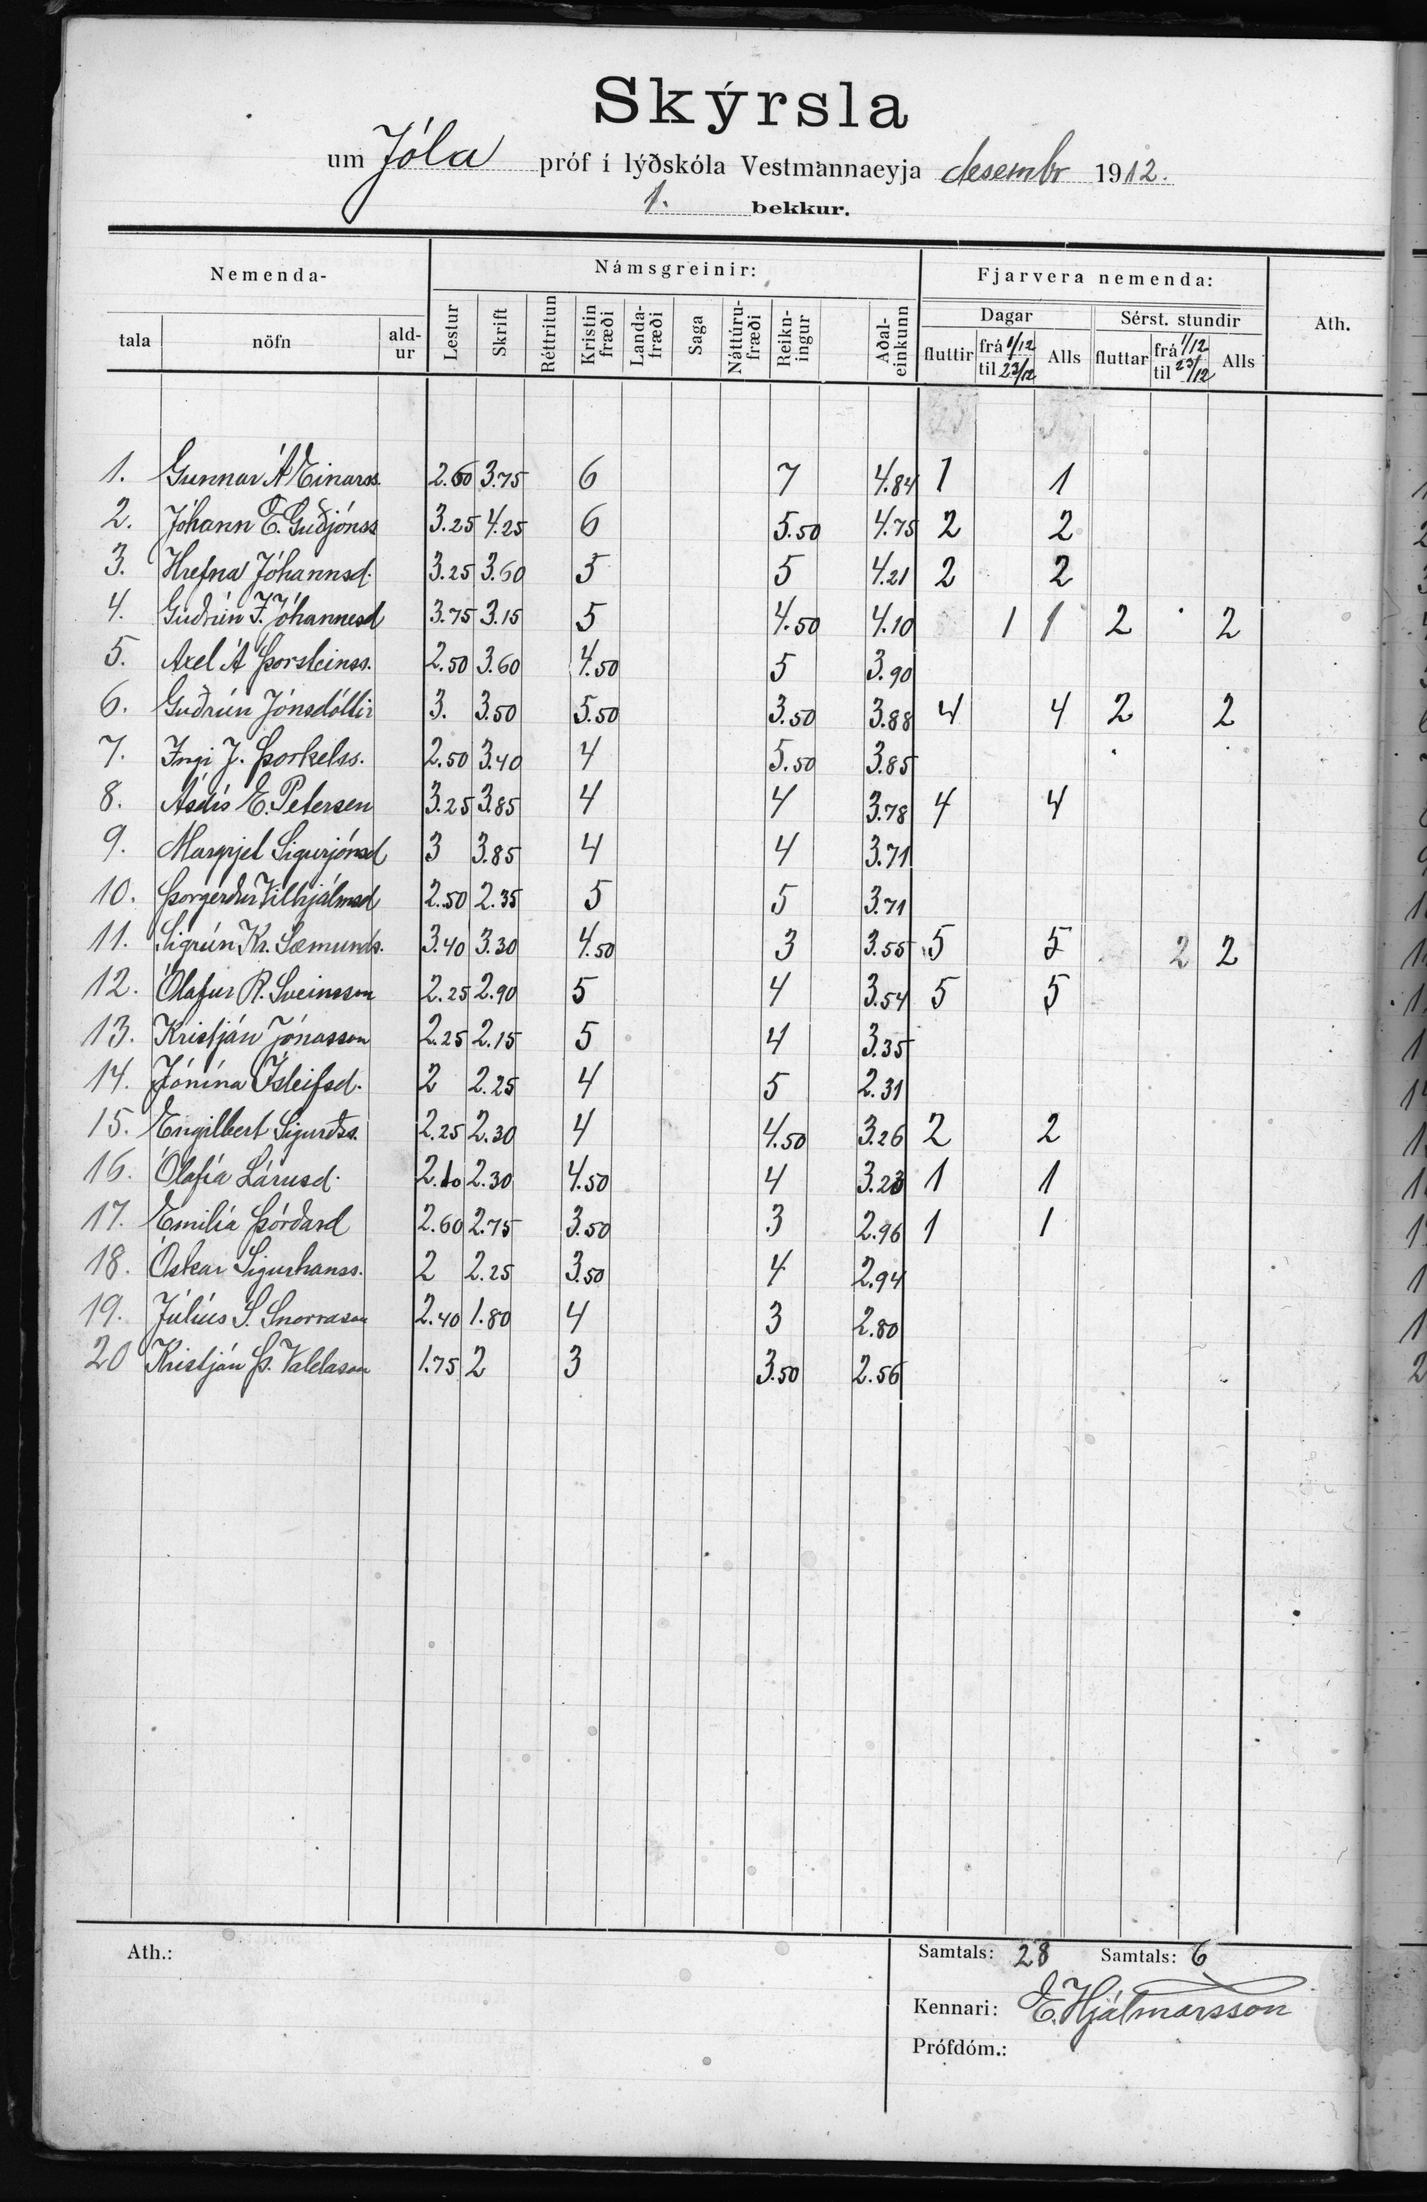 Skýrsla
um Jóla próf í lýðskóla Vestmannaeyja desembr 1912.
1. bekkur.
Nemenda- Námsgreinir: Fjarvera nemenda:
tala nöfn ald-ur Lestur Skrift Réttritun Kristin fræði Landa-fræði Saga Náttúru-fræði Reikn-ingur Aðal-einkunn Dagar Sérst. stundir Ath.
fluttir frá 1/12 til 23/12 Alls fluttar frá 1/12 til 23/12 Alls
1. Gunnar Á Einarss. 2.60 3.75 6 7 4.84 1 1
2. Jóhann E. Guðjónss 3.25 4.25 6 5.50 4.75 2 2
3. Hrefna Jóhannsd. 3.25 3.60 5 5 4.21 2 2
4. Guðrún F. Jóhannesd 3.75 3.15 5 4.50 4.10 1 1 2 2
5. Axel Á Þorsteinss. 2.50 3.60 4.50 5 3.90
6. Guðrún Jónsdóttir 3. 3.50 5.50 3.50 3.88 4 4 2 2
7. Ingi J. Þorkelss. 2.50 3.40 4 5.50 3.85
8. Ásdís E. Petersen 3.25 3.85 4 4 3.78 4 4
9. Margrjet Sigurjónsd 3 3.85 4 4 3.71
10. Þorgerður Vilhjálmsd 2.50 2.35 5 5 3.71
11. Sigrún Kr. Sæmunds. 3.40 3.30 4.50 3 3.55 5 5 2 2
12. Ólafur R. Sveinsson 2.25 2.90 5 4 3.54 5 5
13. Kristján Jónasson 2.25 2.15 5 4 3.35
14. Jónína Ísleifsd. 2 2.25 4 5 2.31
15. Engilbert Sigurðss. 2.25 2.30 4 4.50 3.26 2 2
16. Ólafía Lárusd. 2.10 2.30 4.50 4 3.23 1 1
17. Emilía Þórðard 2.60 2.75 3.50 3 2.96 1 1
18. Óskar Sigurhanss. 2 2.25 3.50 4 2.94
19. Júlíus S. Snorrason 2.40 1.80 4 3 2.80
20 Kristján Þ. Valdason 1.75 2 3 3.50 2.56
Ath.: Samtals: 28 Samtals: 6
Kennari: E. Hjálmarsson
Prófdóm.: